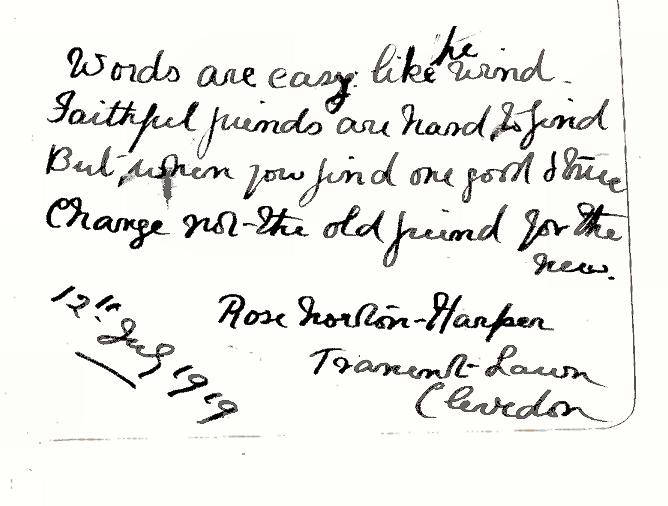 Words are easy like the wind.
Faithful friends are hard to find
But, when you find one good & true
Change not the old friend for the
new.
12th July 1919
Rose Norton-Harper
Lawn
Clevedon